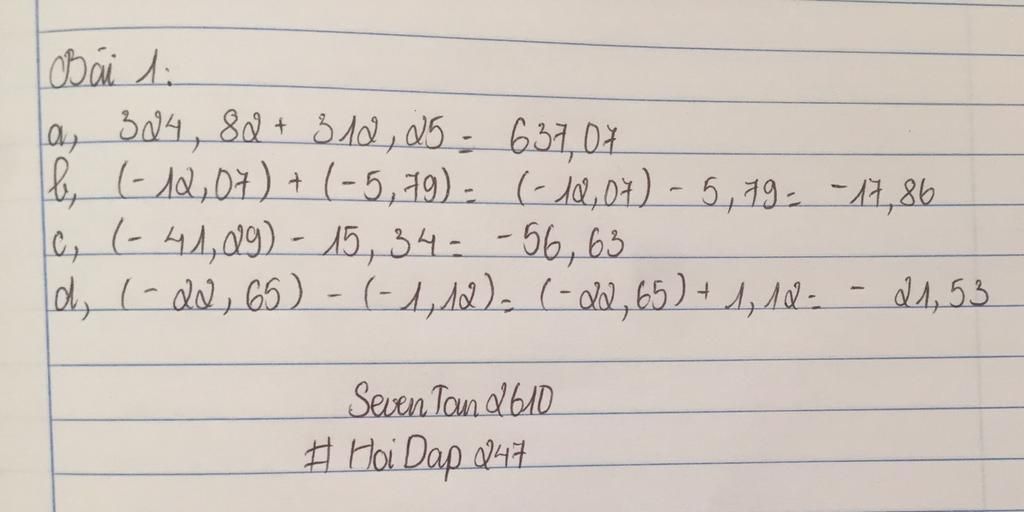 Bài 1:
a, 324,82 + 312,25 = 637,07
b, (-12,07) + (-5,79) = (-12,07) - 5,79 = -17,86
c, (-41,29) - 15,34 = -56,63
d, (-22,65) - (-1,12) = (-22,65) + 1,12 = -21,53
SevenTan2610
# HoiDap247